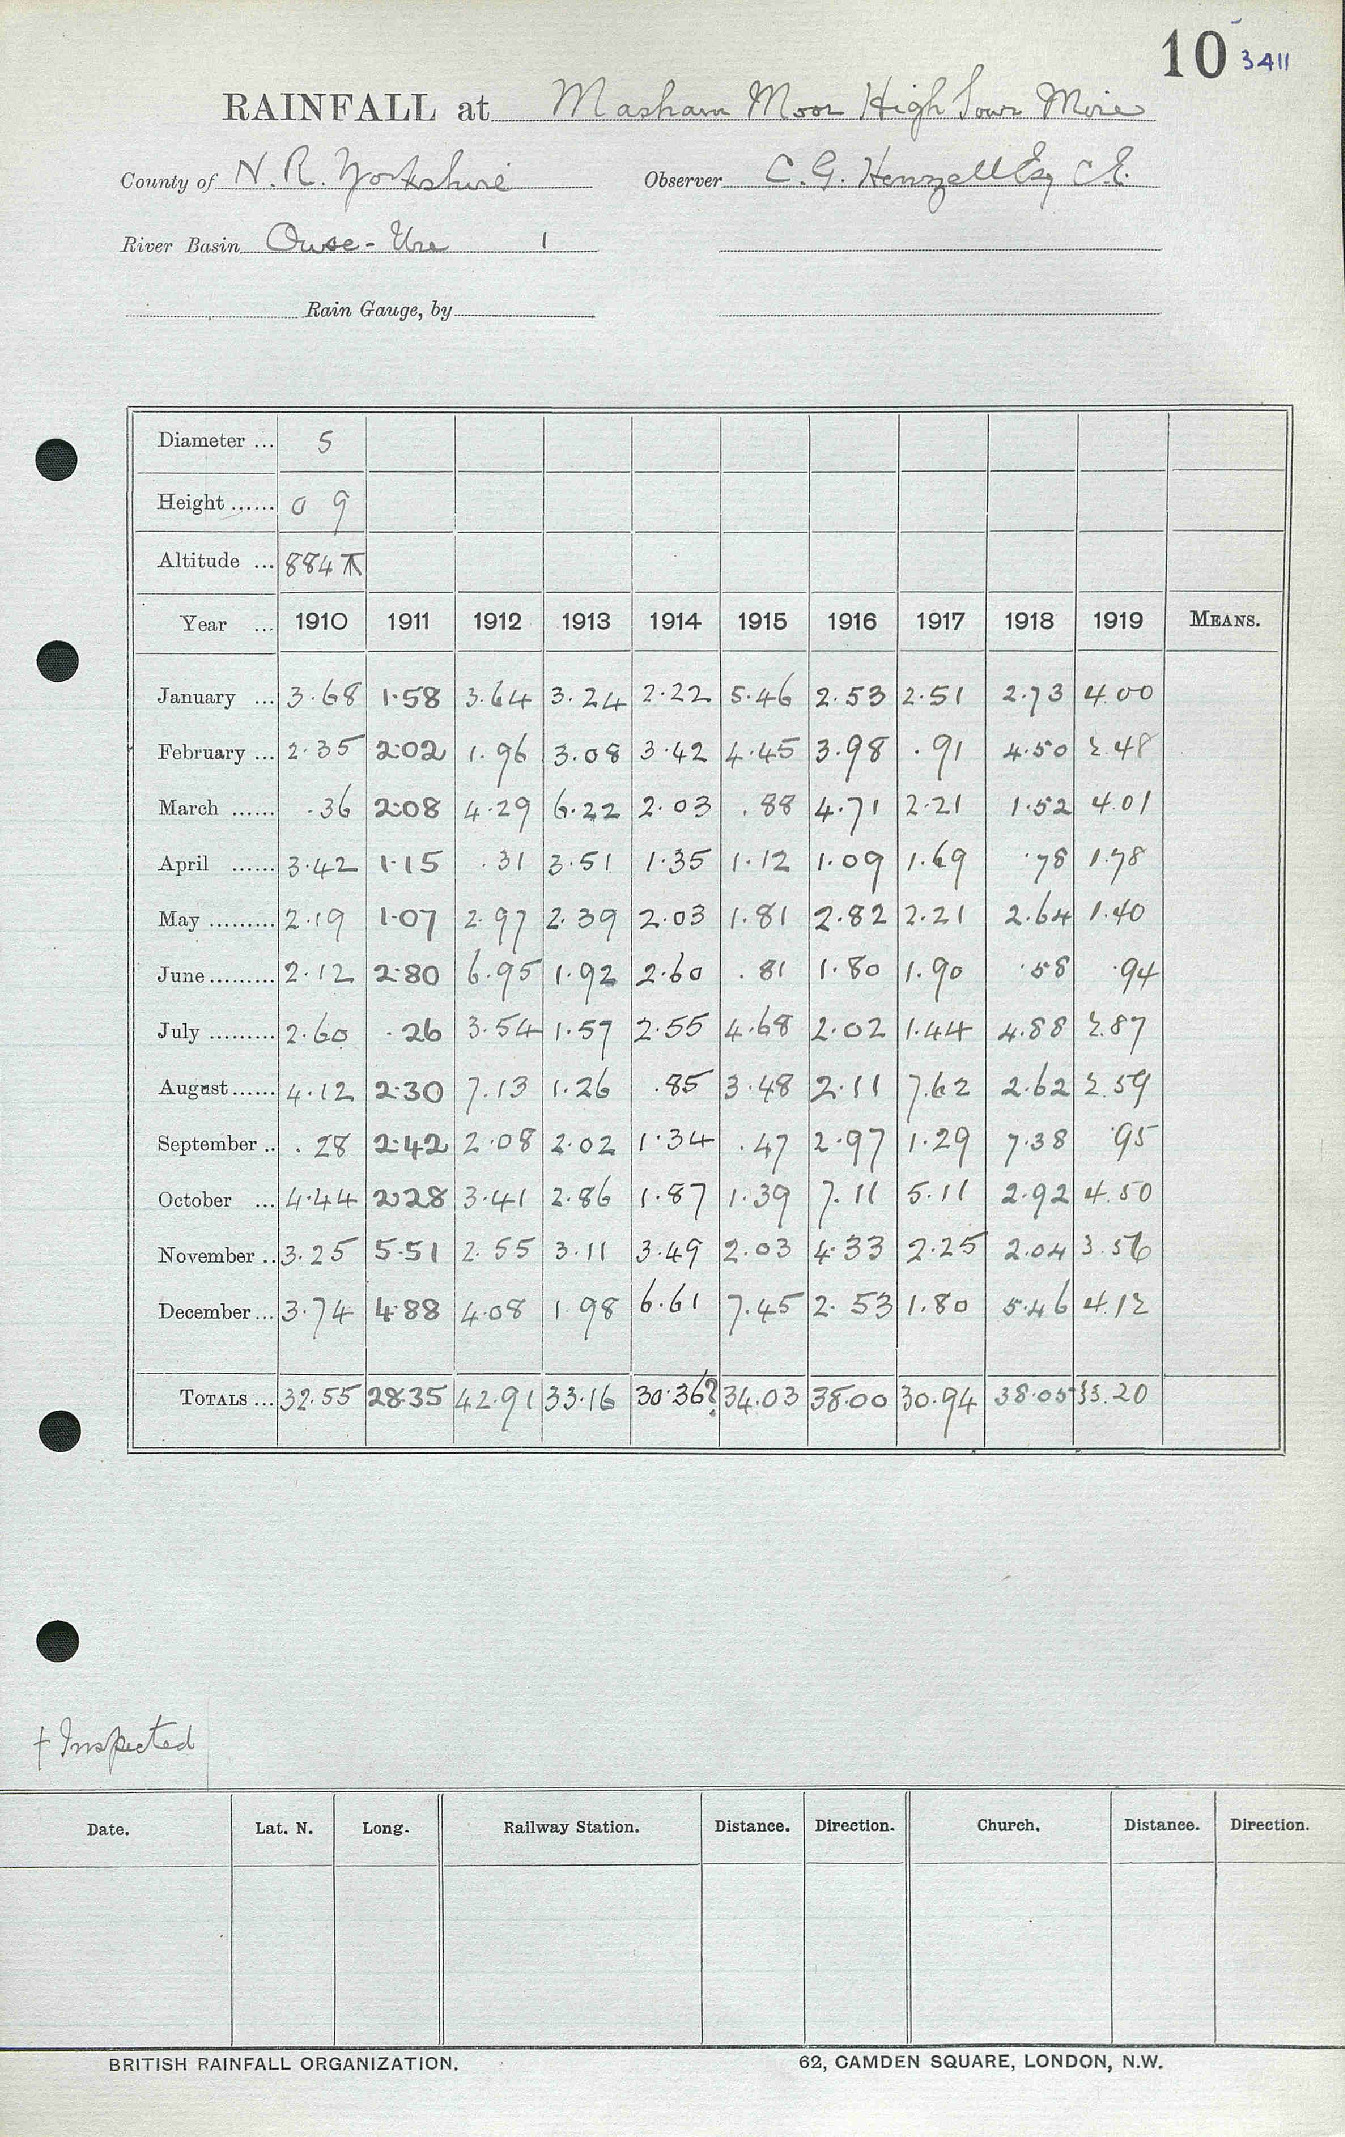 10 3411
RAINFALL at Masham Moor High Sour Mire
County of N. R. Yorkshire Observer C. G. Henzell Esq C.E.
River Basin Ouse - Ure 1
Rain Gauge, by
Diameter ... 5
Height ...... 0 9
Altitude ... 884
Year ... 1910 1911 1912 1913 1914 1915 1916 1917 1918 1919 MEANS.
January ... 3.68 1.58 3.64 3.24 2.22 5.46 2.53 2.51 2.73 4.00
February ... 2.35 2.02 1.96 3.08 3.42 4.45 3.98 .91 4.50 2.48
March ...... .36 2.08 4.29 6.22 2.03 .88 4.71 2.21 1.52 4.01
April ...... 3.42 1.15 .31 3.51 1.35 1.12 1.09 1.69 .78 1.78
May ......... 2.19 1.07 2.97 2.39 2.03 1.81 2.82 2.21 2.64 1.40
June ......... 2.12 2.80 6.95 1.92 2.60 .81 1.80 1.90 .58 .94
July ......... 2.60 .26 3.54 1.57 2.55 4.68 2.02 1.44 4.88 2.87
August ...... 4.12 2.30 7.13 1.26 .85 3.48 2.11 7.62 2.62 2.59
September .. .28 2.42 2.08 2.02 1.34 .47 2.97 1.29 7.38 .95
October ... 4.44 2.28 3.41 2.86 1.87 1.39 7.11 5.11 2.92 4.50
November .. 3.25 5.51 2.55 3.11 3.49 2.03 4.33 2.25 2.04 3.56
December ... 3.74 4.88 4.08 1.98 6.61 7.45 2.53 1.80 5.46 4.12
TOTALS ... 32.55 28.35 42.91 33.16 30.36? 34.03 38.00 30.94 38.05 33.20
† Inspected
Date. Lat. N. Long. Railway Station. Distance. Direction. Church. Distance. Direction.
BRITISH RAINFALL ORGANIZATION. 62, CAMDEN SQUARE, LONDON, N.W.